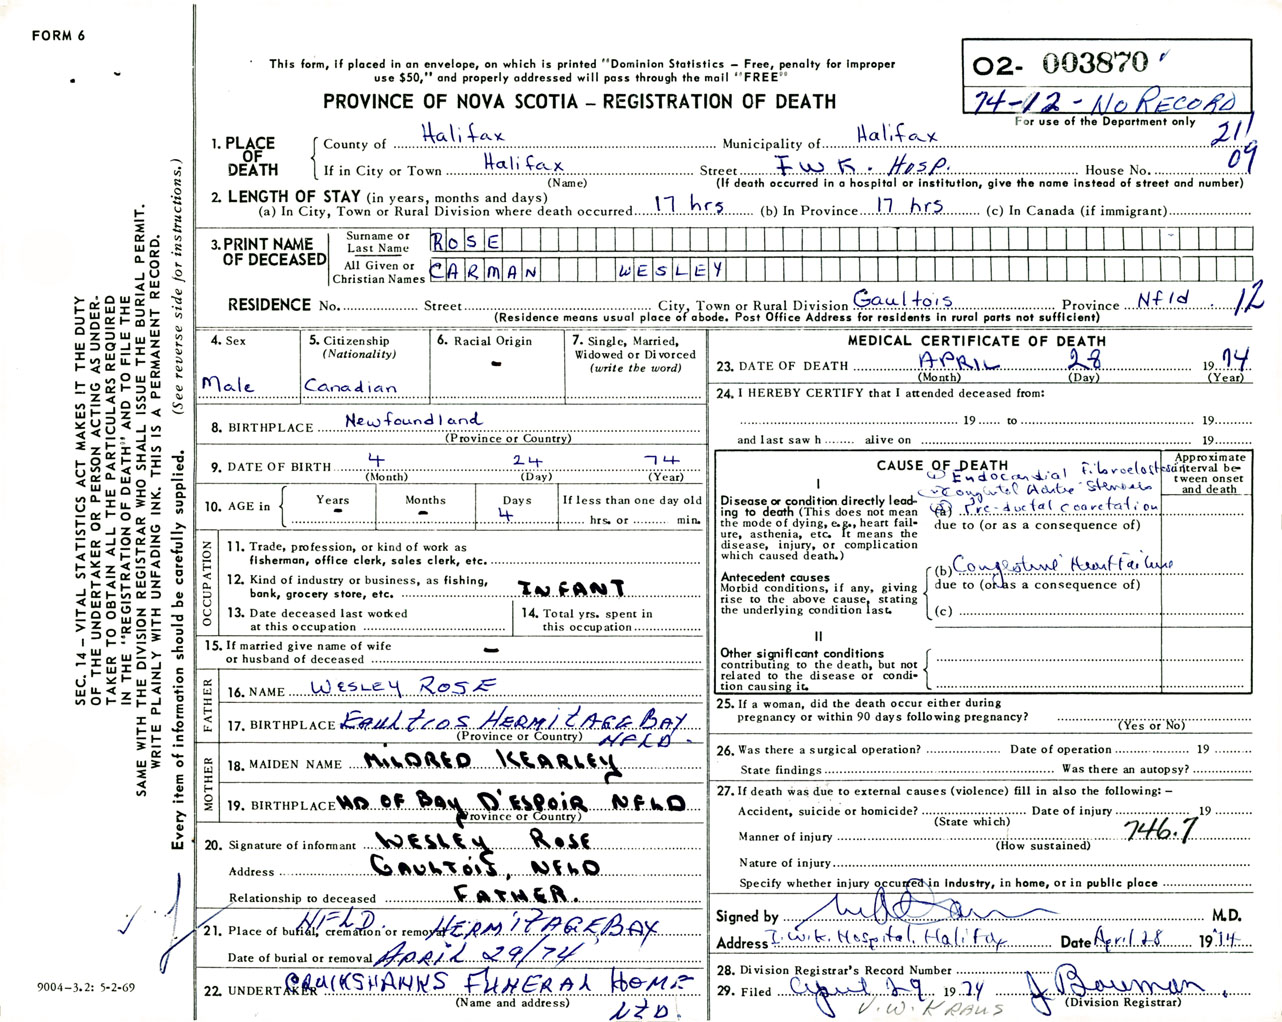 FORM 6
This form, if placed in an envelope, on which is printed "Dominion Statistics – Free, penalty for improper
use $50," and properly addressed will pass through the mail "FREE"
02- 003870
74-12 - NO RECORD
For use of the Department only
PROVINCE OF NOVA SCOTIA – REGISTRATION OF DEATH
211
09
1. PLACE OF DEATH
County of Halifax Municipality of Halifax
If in City or Town Halifax Street I W K. Hosp. House No.
(Name) (If death occurred in a hospital or institution, give the name instead of street and number)
2. LENGTH OF STAY (in years, months and days)
(a) In City, Town or Rural Division where death occurred 17 hrs (b) In Province 17 hrs (c) In Canada (if immigrant)
3. PRINT NAME OF DECEASED
Surname or Last Name ROSE
All Given or Christian Names CARMAN WESLEY
RESIDENCE No. Street City, Town or Rural Division Gaultois Province Nfld. 12
(Residence means usual place of abode. Post Office Address for residents in rural parts not sufficient)
4. Sex Male
5. Citizenship (Nationality) Canadian
6. Racial Origin -
7. Single, Married, Widowed or Divorced (write the word)
8. BIRTHPLACE Newfoundland
(Province or Country)
9. DATE OF BIRTH 4 24 74
(Month) (Day) (Year)
10. AGE in Years - Months - Days 4 If less than one day old hrs. or min.
OCCUPATION
11. Trade, profession, or kind of work as
fisherman, office clerk, sales clerk, etc.
12. Kind of industry or business, as fishing,
bank, grocery store, etc. INFANT
13. Date deceased last worked
at this occupation
14. Total yrs. spent in
this occupation
15. If married give name of wife
or husband of deceased -
FATHER
16. NAME WESLEY ROSE
17. BIRTHPLACE HERMITAGE BAY
(Province or Country) NFLD.
MOTHER
18. MAIDEN NAME MILDRED KEARLEY
19. BIRTHPLACE HD OF BAY D'ESPOIR NFLD
(Province or Country)
20. Signature of informant WESLEY ROSE
Address GAULTOIS, NFLD
Relationship to deceased FATHER.
21. Place of burial, cremation or removal NFLD. HERMITAGE BAY
Date of burial or removal APRIL 29/74
22. UNDERTAKER CRUIKSHANKS FUNERAL HOME
(Name and address) LTD.
MEDICAL CERTIFICATE OF DEATH
23. DATE OF DEATH APRIL 28 19 74
(Month) (Day) (Year)
24. I HEREBY CERTIFY that I attended deceased from:
19 to 19
and last saw h alive on 19
CAUSE OF DEATH
Approximate interval between onset and death
I
Endocardial Fibroelastosis
Aortic Stenosis
Disease or condition directly leading to death (This does not mean the mode of dying, e.g., heart failure, asthenia, etc. It means the disease, injury, or complication which caused death.)
(a) Pre-ductal coarctation
due to (or as a consequence of)
Antecedent causes
Morbid conditions, if any, giving rise to the above cause, stating the underlying condition last.
(b) Congestive Heart Failure
due to (or as a consequence of)
(c)
II
Other significant conditions
contributing to the death, but not related to the disease or condition causing it.
25. If a woman, did the death occur either during
pregnancy or within 90 days following pregnancy?
(Yes or No)
26. Was there a surgical operation? Date of operation 19
State findings Was there an autopsy?
27. If death was due to external causes (violence) fill in also the following: –
Accident, suicide or homicide? Date of injury 19
(State which) 746.7
Manner of injury
(How sustained)
Nature of injury
Specify whether injury occurred in industry, in home, or in public place
Signed by M.D.
Address I.W.K. Hospital, Halifax Date April 28 19 74
28. Division Registrar's Record Number
29. Filed April 29 19 74 J Bowman
(Division Registrar)
V. W. KRAUS
SEC. 14 – VITAL STATISTICS ACT MAKES IT THE DUTY
OF THE UNDERTAKER OR PERSON ACTING AS UNDER-
TAKER TO OBTAIN ALL THE PARTICULARS REQUIRED
IN THE "REGISTRATION OF DEATH" AND TO FILE THE
SAME WITH THE DIVISION REGISTRAR WHO SHALL ISSUE THE BURIAL PERMIT.
WRITE PLAINLY WITH UNFADING INK. THIS IS A PERMANENT RECORD.
Every item of information should be carefully supplied. (See reverse side for instructions.)
9004-3.2: 5-2-69